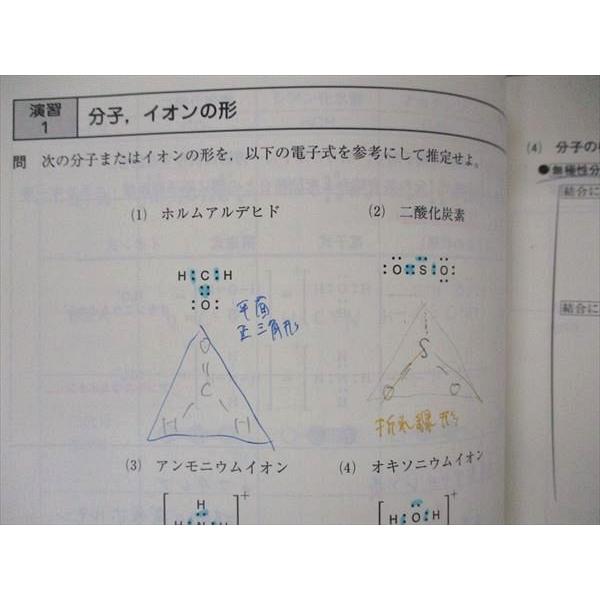 演習
1
分子，イオンの形
問 次の分子またはイオンの形を，以下の電子式を参考にして推定せよ。
(1) ホルムアルデヒド
(2) 二酸化炭素
H:C:H
:O:
:O:S:O:
平面
正三角形
O
C
H H
S
O O
折れ線形
(3) アンモニウムイオン
(4) オキソニウムイオン
H
+
H:N:H
H:O:H
+
(4) 分子の
●無極性分
結合に
結合に